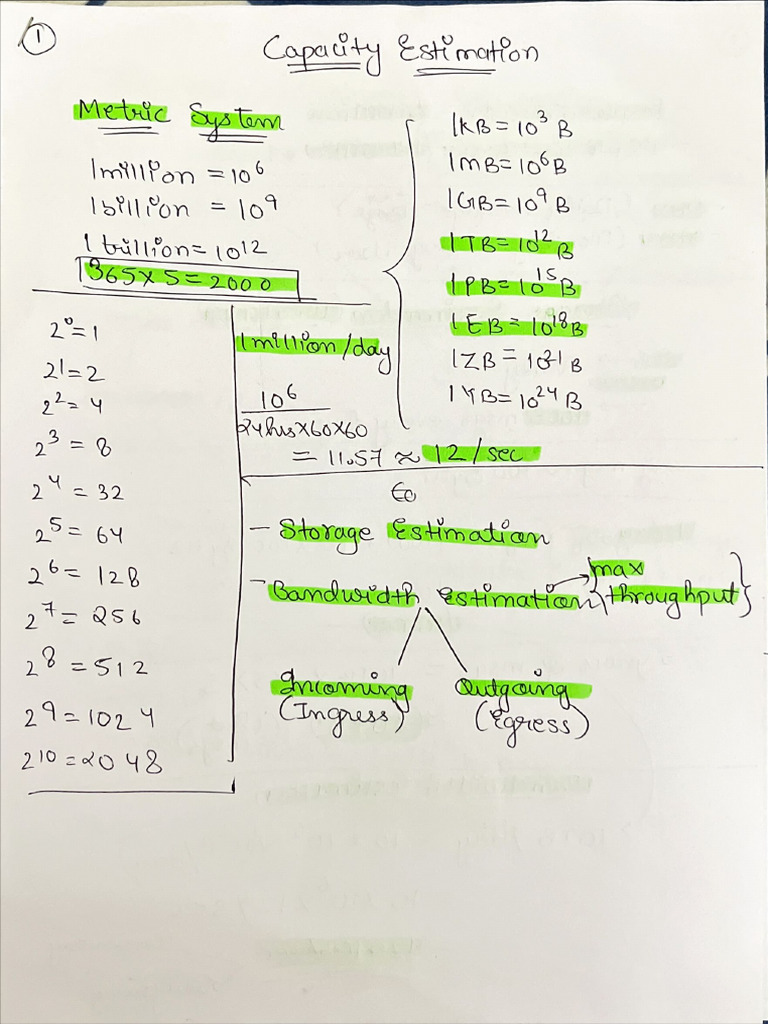 1
Capacity Estimation
Metric System
1 million = 10⁶
1 billion = 10⁹
1 trillion = 10¹²
365 x 5 = 2000
1KB = 10³ B
1MB = 10⁶ B
1GB = 10⁹ B
1TB = 10¹² B
1PB = 10¹⁵ B
1EB = 10¹⁸ B
1ZB = 10²¹ B
1YB = 10²⁴ B
2⁰ = 1
2¹ = 2
2² = 4
2³ = 8
2⁴ = 32
2⁵ = 64
2⁶ = 128
2⁷ = 256
2⁸ = 512
2⁹ = 1024
2¹⁰ = 2048
1 million/day
10⁶
24hrs x 60 x 60
= 11.57 ≈ 12/sec
- Storage Estimation
- Bandwidth Estimation { max throughput }
Incoming
(Ingress)
Outgoing
(Egress)